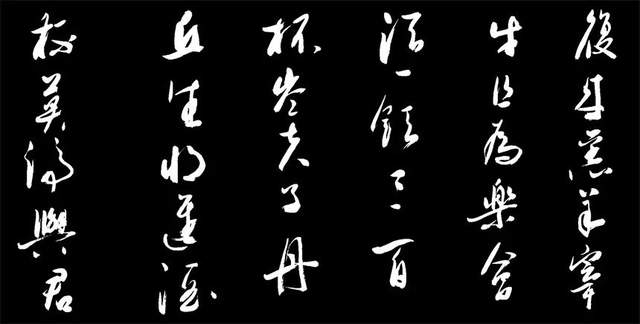 復来烹羊宰
牛且為樂會
須一飲三百
杯岑夫子丹
丘生将進酒
杯莫停與君